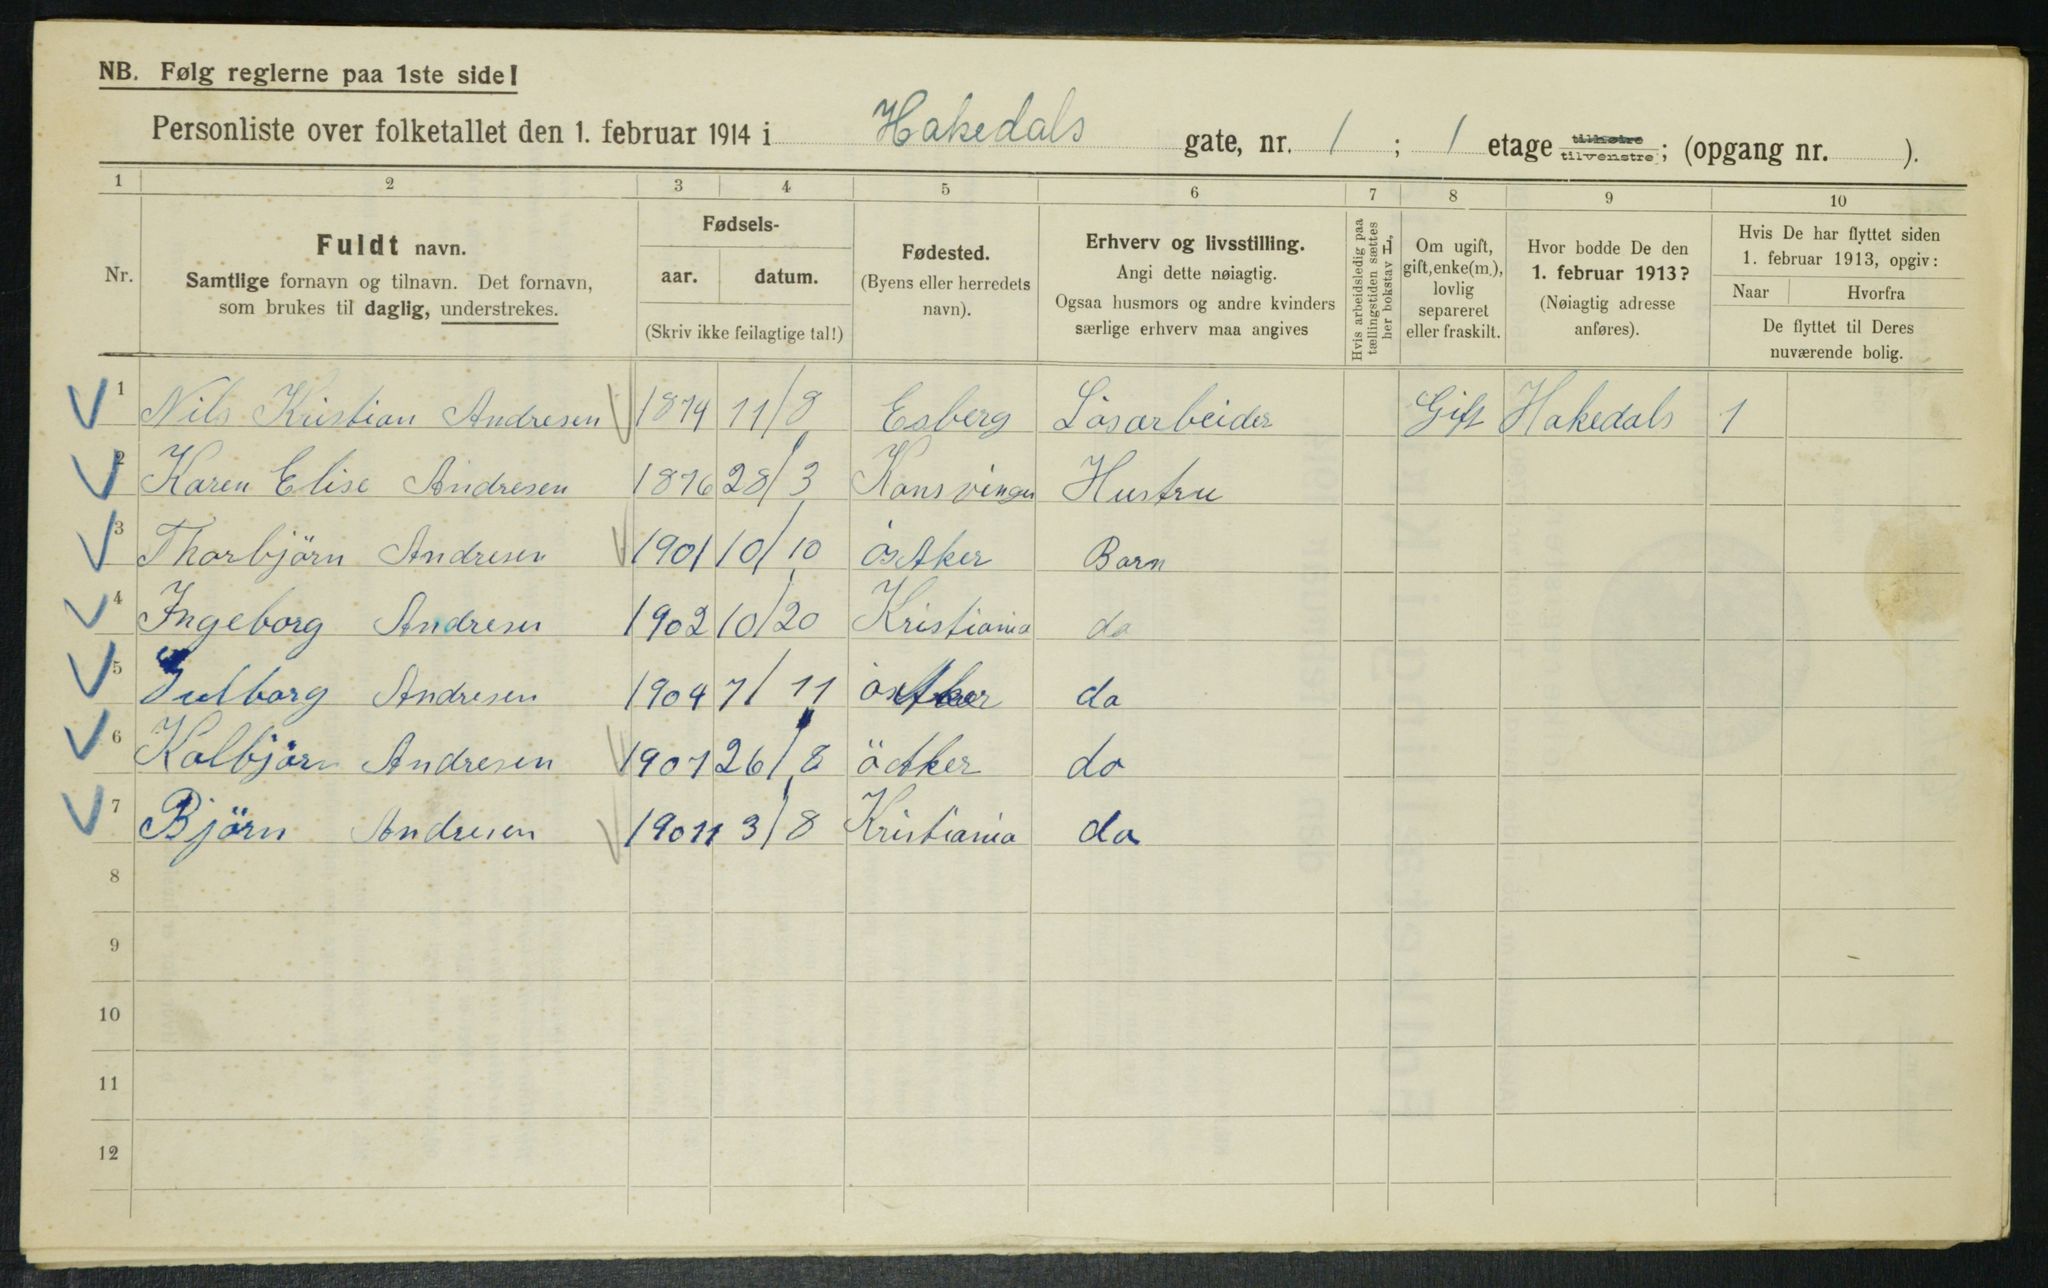 NB. Følg reglerne paa 1ste side!
Personliste over folketallet den 1. februar 1914 i Hakedals gate, nr. 1 ; 1 etage tilhøire tilvenstre; (opgang nr. ).
1 2 3 4 5 6 7 8 9 10
Nr.
Fuldt navn.
Samtlige fornavn og tilnavn. Det fornavn,
som brukes til daglig, understrekes.
Fødsels-
aar. datum.
(Skriv ikke feilagtige tal!)
Fødested.
(Byens eller herredets
navn).
Erhverv og livsstilling.
Angi dette nøiagtig.
Ogsaa husmors og andre kvinders
særlige erhverv maa angives
Hvis arbeidsledig paa
tællingstiden sættes
her bokstav L,
Om ugift,
gift, enke(m.),
lovlig
separeret
eller fraskilt.
Hvor bodde De den
1. februar 1913?
(Nøiagtig adresse
anføres).
Hvis De har flyttet siden
1. februar 1913, opgiv:
Naar Hvorfra
De flyttet til Deres
nuværende bolig.
1 Nils Kristian Andresen 1874 11/8 Esberg Lösarbeider Gift Hakedals 1
2 Karen Elise Andresen 1876 28/3 Konsvinger Hustru
3 Thorbjörn Andresen 1901 10/10 ös Aker Barn
4 Ingeborg Andresen 1902 10/20 Kristiania do
5 Andresen 1904 7/11 ös Aker do
6 Kolbjörn Andresen 1907 26/8 ö Aker do
7 Björn Andresen 19011 3/8 Kristiania do
8
9
10
11
12